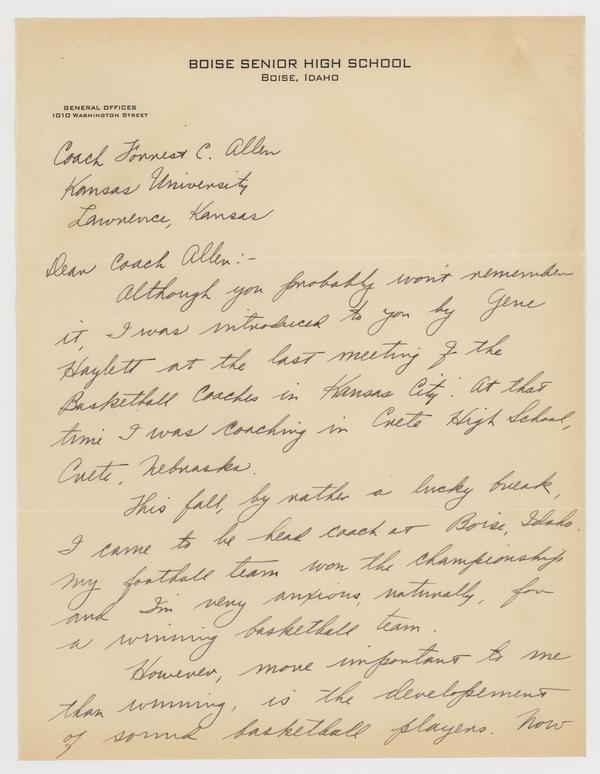 BOISE SENIOR HIGH SCHOOL
BOISE, IDAHO
GENERAL OFFICES
1010 WASHINGTON STREET
Coach Forrest C. Allen
Kansas University
Lawrence, Kansas
Dear Coach Allen:-
Although you probably won't remember
it, I was introduced to you by Gene
Haylett at the last meeting of the
Basketball Coaches in Kansas City. At that
time I was coaching in Crete High School,
Crete, Nebraska.
This fall, by rather a lucky break,
I came to be head coach at Boise, Idaho.
My football team won the championship
and I'm very anxious, naturally, for
a winning basketball team.
However, more important to me
than winning, is the developement
of sound basketball players. Now